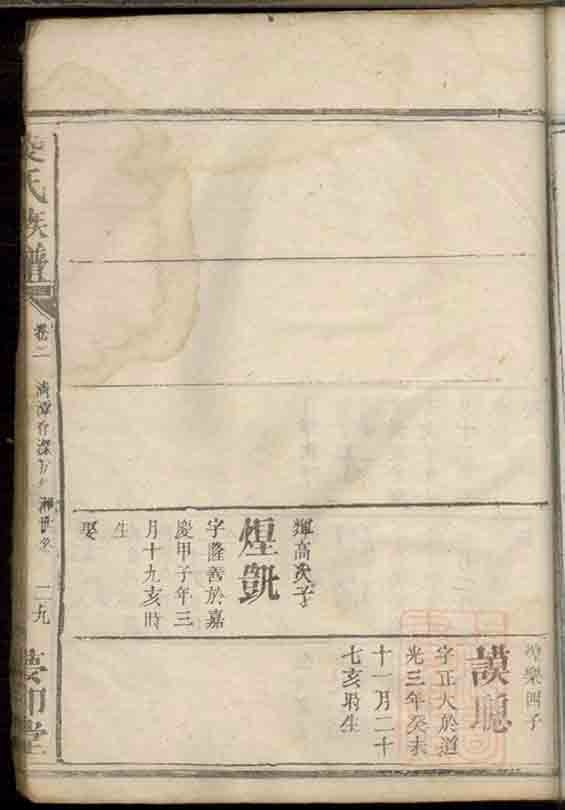 煌樂四子
謨聰
字正大於道
光三年癸未
十一月二十
七亥時生
輝高次子
煌凱
字隆善於嘉
慶甲子年三
月十九亥時
生
娶
氏族譜
卷二
二九